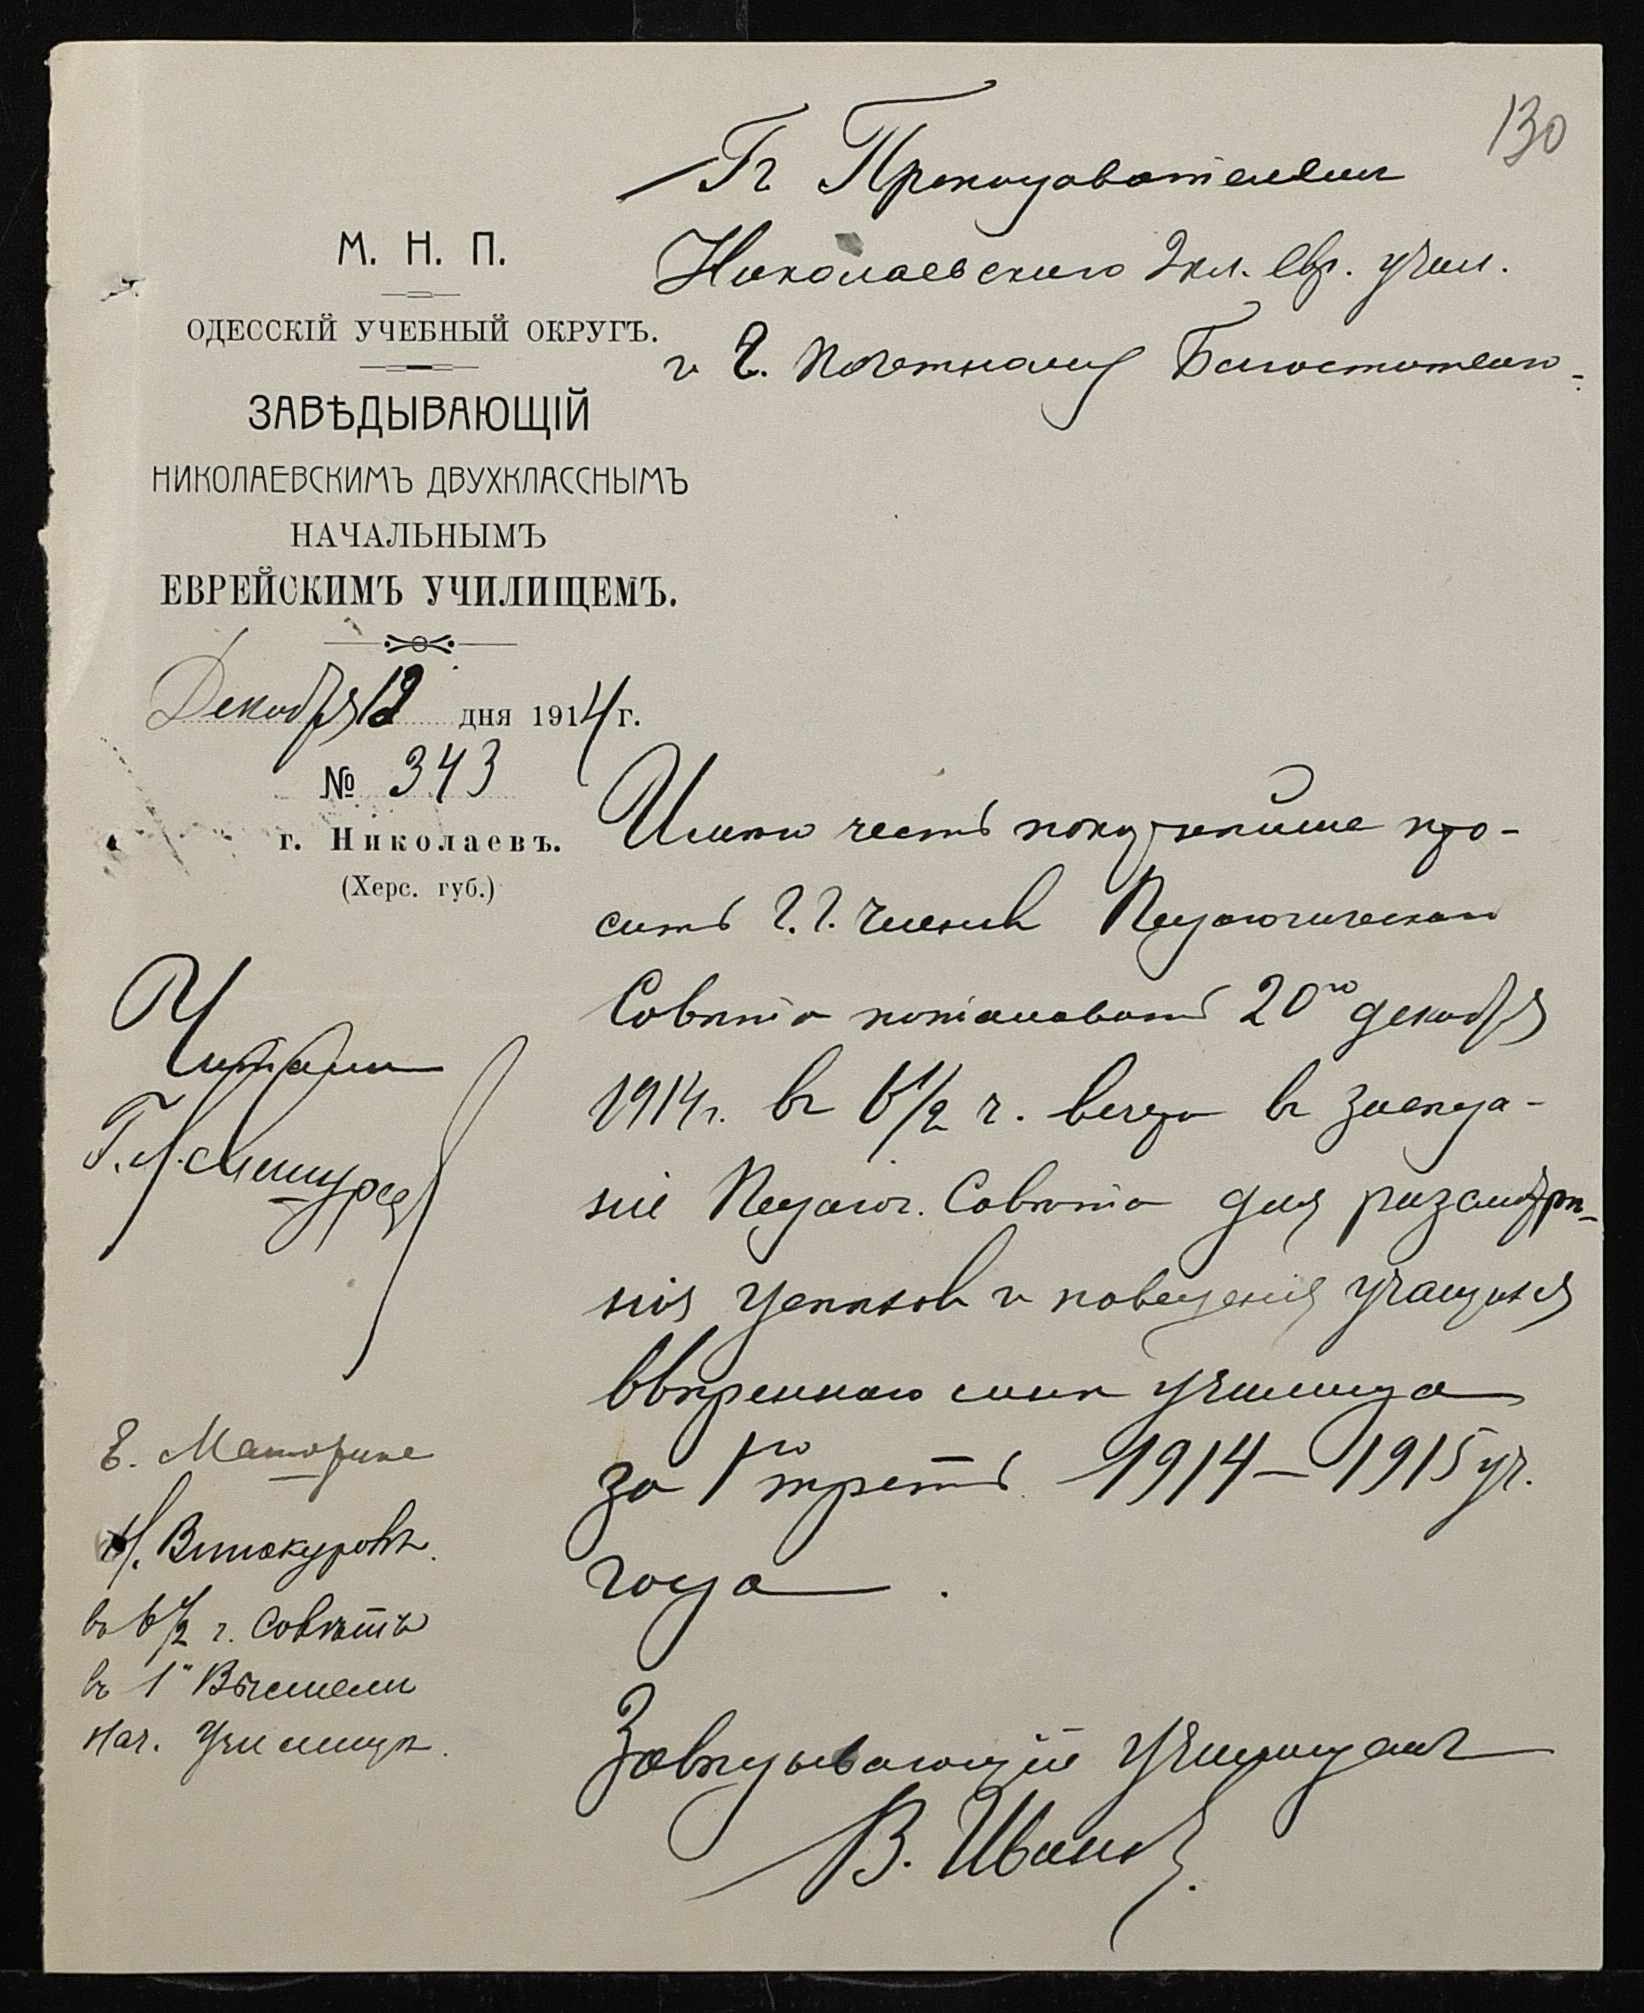 130
Гг. Преподавателямъ
Николаевскаго 2кл. евр. учил.
и Г. Почетному Блюстителю.
М. Н. П.
ОДЕССКІЙ УЧЕБНЫЙ ОКРУГЪ.
ЗАВѢДЫВАЮЩІЙ
НИКОЛАЕВСКИМЪ ДВУХКЛАССНЫМЪ
НАЧАЛЬНЫМЪ
ЕВРЕЙСКИМЪ УЧИЛИЩЕМЪ.
Декабря 12 дня 1914 г.
№ 343
г. Николаевъ.
(Херс. губ.)
Имѣю честь покорнѣйше про-
сить г.г. членовъ Педагогическаго
Совѣта пожаловать 20го декабря
1914 г. въ 6 1/2 ч. вечера въ засѣда-
ніе Педагог. Совѣта для разсмотрѣ-
нія успѣховъ и поведенія учащихся
ввѣреннаго мнѣ училища
за 1ю треть 1914–1915 уч.
года.
Завѣдывающій училищемъ
В. Ивановъ.
Читали
Н. Винокуровъ.
въ 6 1/2 ч. Совѣтъ
въ 1мъ Высшемъ
Нач. Училищѣ.